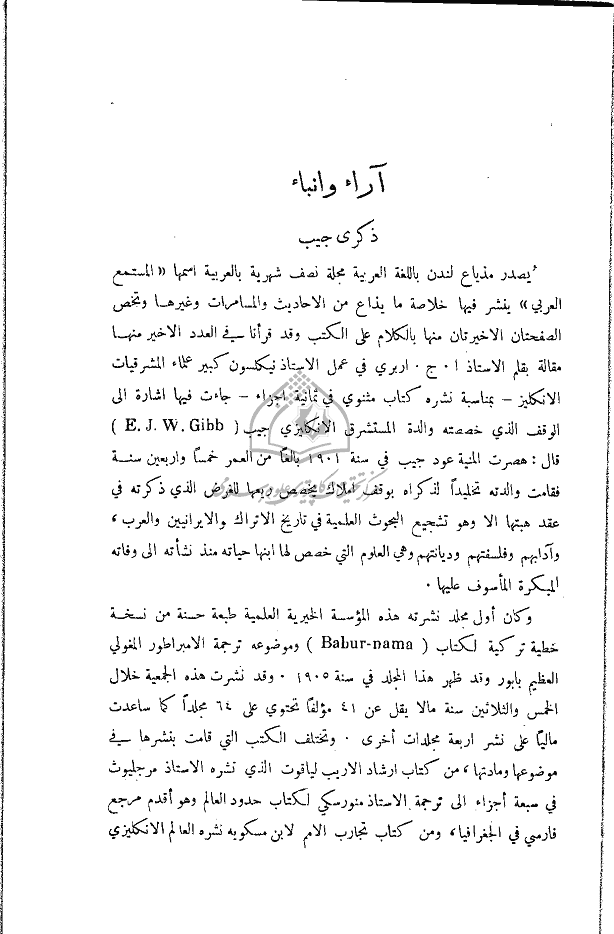 آراء وانباء
ذكرى جيب
يُصدر مذياع لندن باللغة العربية مجلة نصف شهرية بالعربية اسمها «المستمع
العربي» ينشر فيها خلاصة ما يذاع من الاحاديث والمسامرات وغيرها وتخص
الصفحتان الاخيرتان منها بالكلام على الكتب وقد قرأنا في العدد الاخير منها
مقالة بقلم الاستاذ ا · ج · اربري في عمل الاستاذ نيكلسون كبير علماء المشرقيات
الانكليز – بمناسبة نشره كتاب مثنوي في ثمانية اجزاء – جاءت فيها اشارة الى
الوقف الذي خصصته والدة المستشرق الانكليزي جيب ( E. J. W. Gibb )
قال : هصرت المنية عود جيب في سنة ١٩٠١ بالغاً من العمر خمساً واربعين سنة
فقامت والدته تخليداً لذكراه بوقف أملاك يخصص ريعها للغرض الذي ذكرته في
عقد هبتها الا وهو تشجيع البحوث العلمية في تاريخ الاتراك والايرانيين والعرب ،
وآدابهم وفلسفتهم وديانتهم وهي العلوم التي خصص لها ابنها حياته منذ نشأته الى وفاته
المبكرة المأسوف عليها ·
وكان أول مجلد نشرته هذه المؤسسة الخيرية العلمية طبعة حسنة من نسخة
خطية تركية لكتاب ( Babur-nama ) وموضوعه ترجمة الامبراطور المغولي
العظيم بابور وقد ظهر هذا المجلد في سنة ١٩٠٥ · وقد نشرت هذه الجمعية خلال
الخمس والثلاثين سنة مالا يقل عن ٤١ مؤلفاً تحتوي على ٦٤ مجلداً كما ساعدت
مالياً على نشر اربعة مجلدات أخرى · وتختلف الكتب التي قامت بنشرها في
موضوعها ومادتها ، من كتاب ارشاد الاريب لياقوت الذي نشره الاستاذ مرجليوث
في سبعة أجزاء الى ترجمة الاستاذ منورسكي لكتاب حدود العالم وهو أقدم مرجع
فارسي في الجغرافيا ، ومن كتاب تجارب الامم لابن مسكوبه نشره العالم الانكليزي